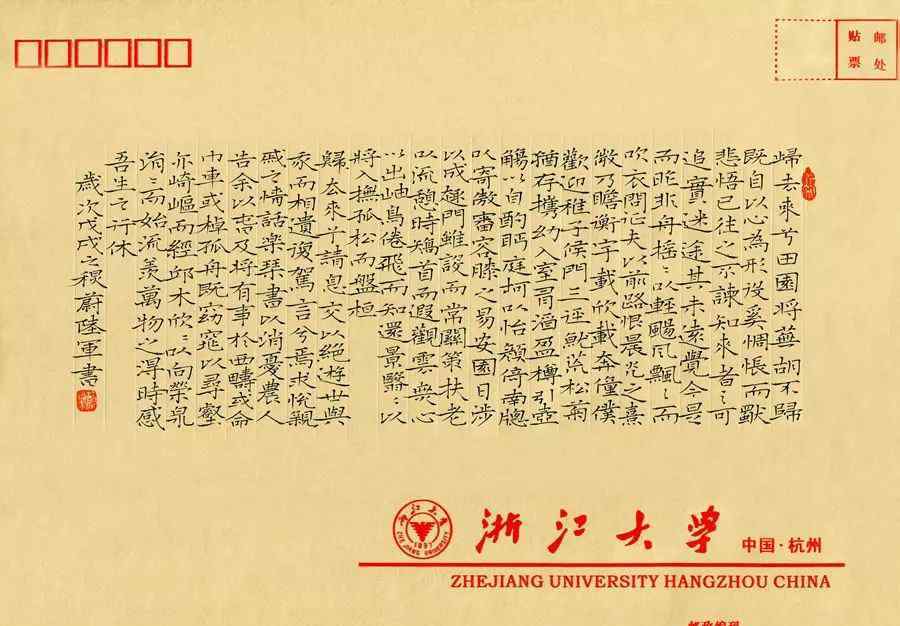 邮
处
贴
票
歸去來兮田園將蕪胡不歸
既自以心為形役奚惆悵而獨
悲悟已往之不諫知來者之可
追實迷途其未遠覺今是
而昨非舟搖:以輕颺風飄:而
吹衣問征夫以前路恨晨光之熹
微乃瞻衡宇載欣載奔僮僕
歡迎稚子候門三逕就荒松菊
猶存攜幼入室有酒盈樽引壺
觴以自酌眄庭柯以怡顏倚南牕
以寄敖審容膝之易安園日涉
以成趣門雖設而常關策扶老
以流憩時矯首而遐觀雲無心
以出岫鳥倦飛而知還景翳:以
將入撫孤松而盤桓
歸去來兮請息交以絕遊世與
我而相遺復駕言兮焉求悅親
戚之情話樂琴書以消憂農人
告余以春及將有事於西疇或命
巾車或棹孤舟既窈窕以尋壑
亦崎嶇而經邱木欣:以向榮泉
涓:而始流羨萬物之得時感
吾生之行休
歲次戊戌之穐蔚陸軍書
浙江大学 中国·杭州
ZHEJIANG UNIVERSITY HANGZHOU CHINA